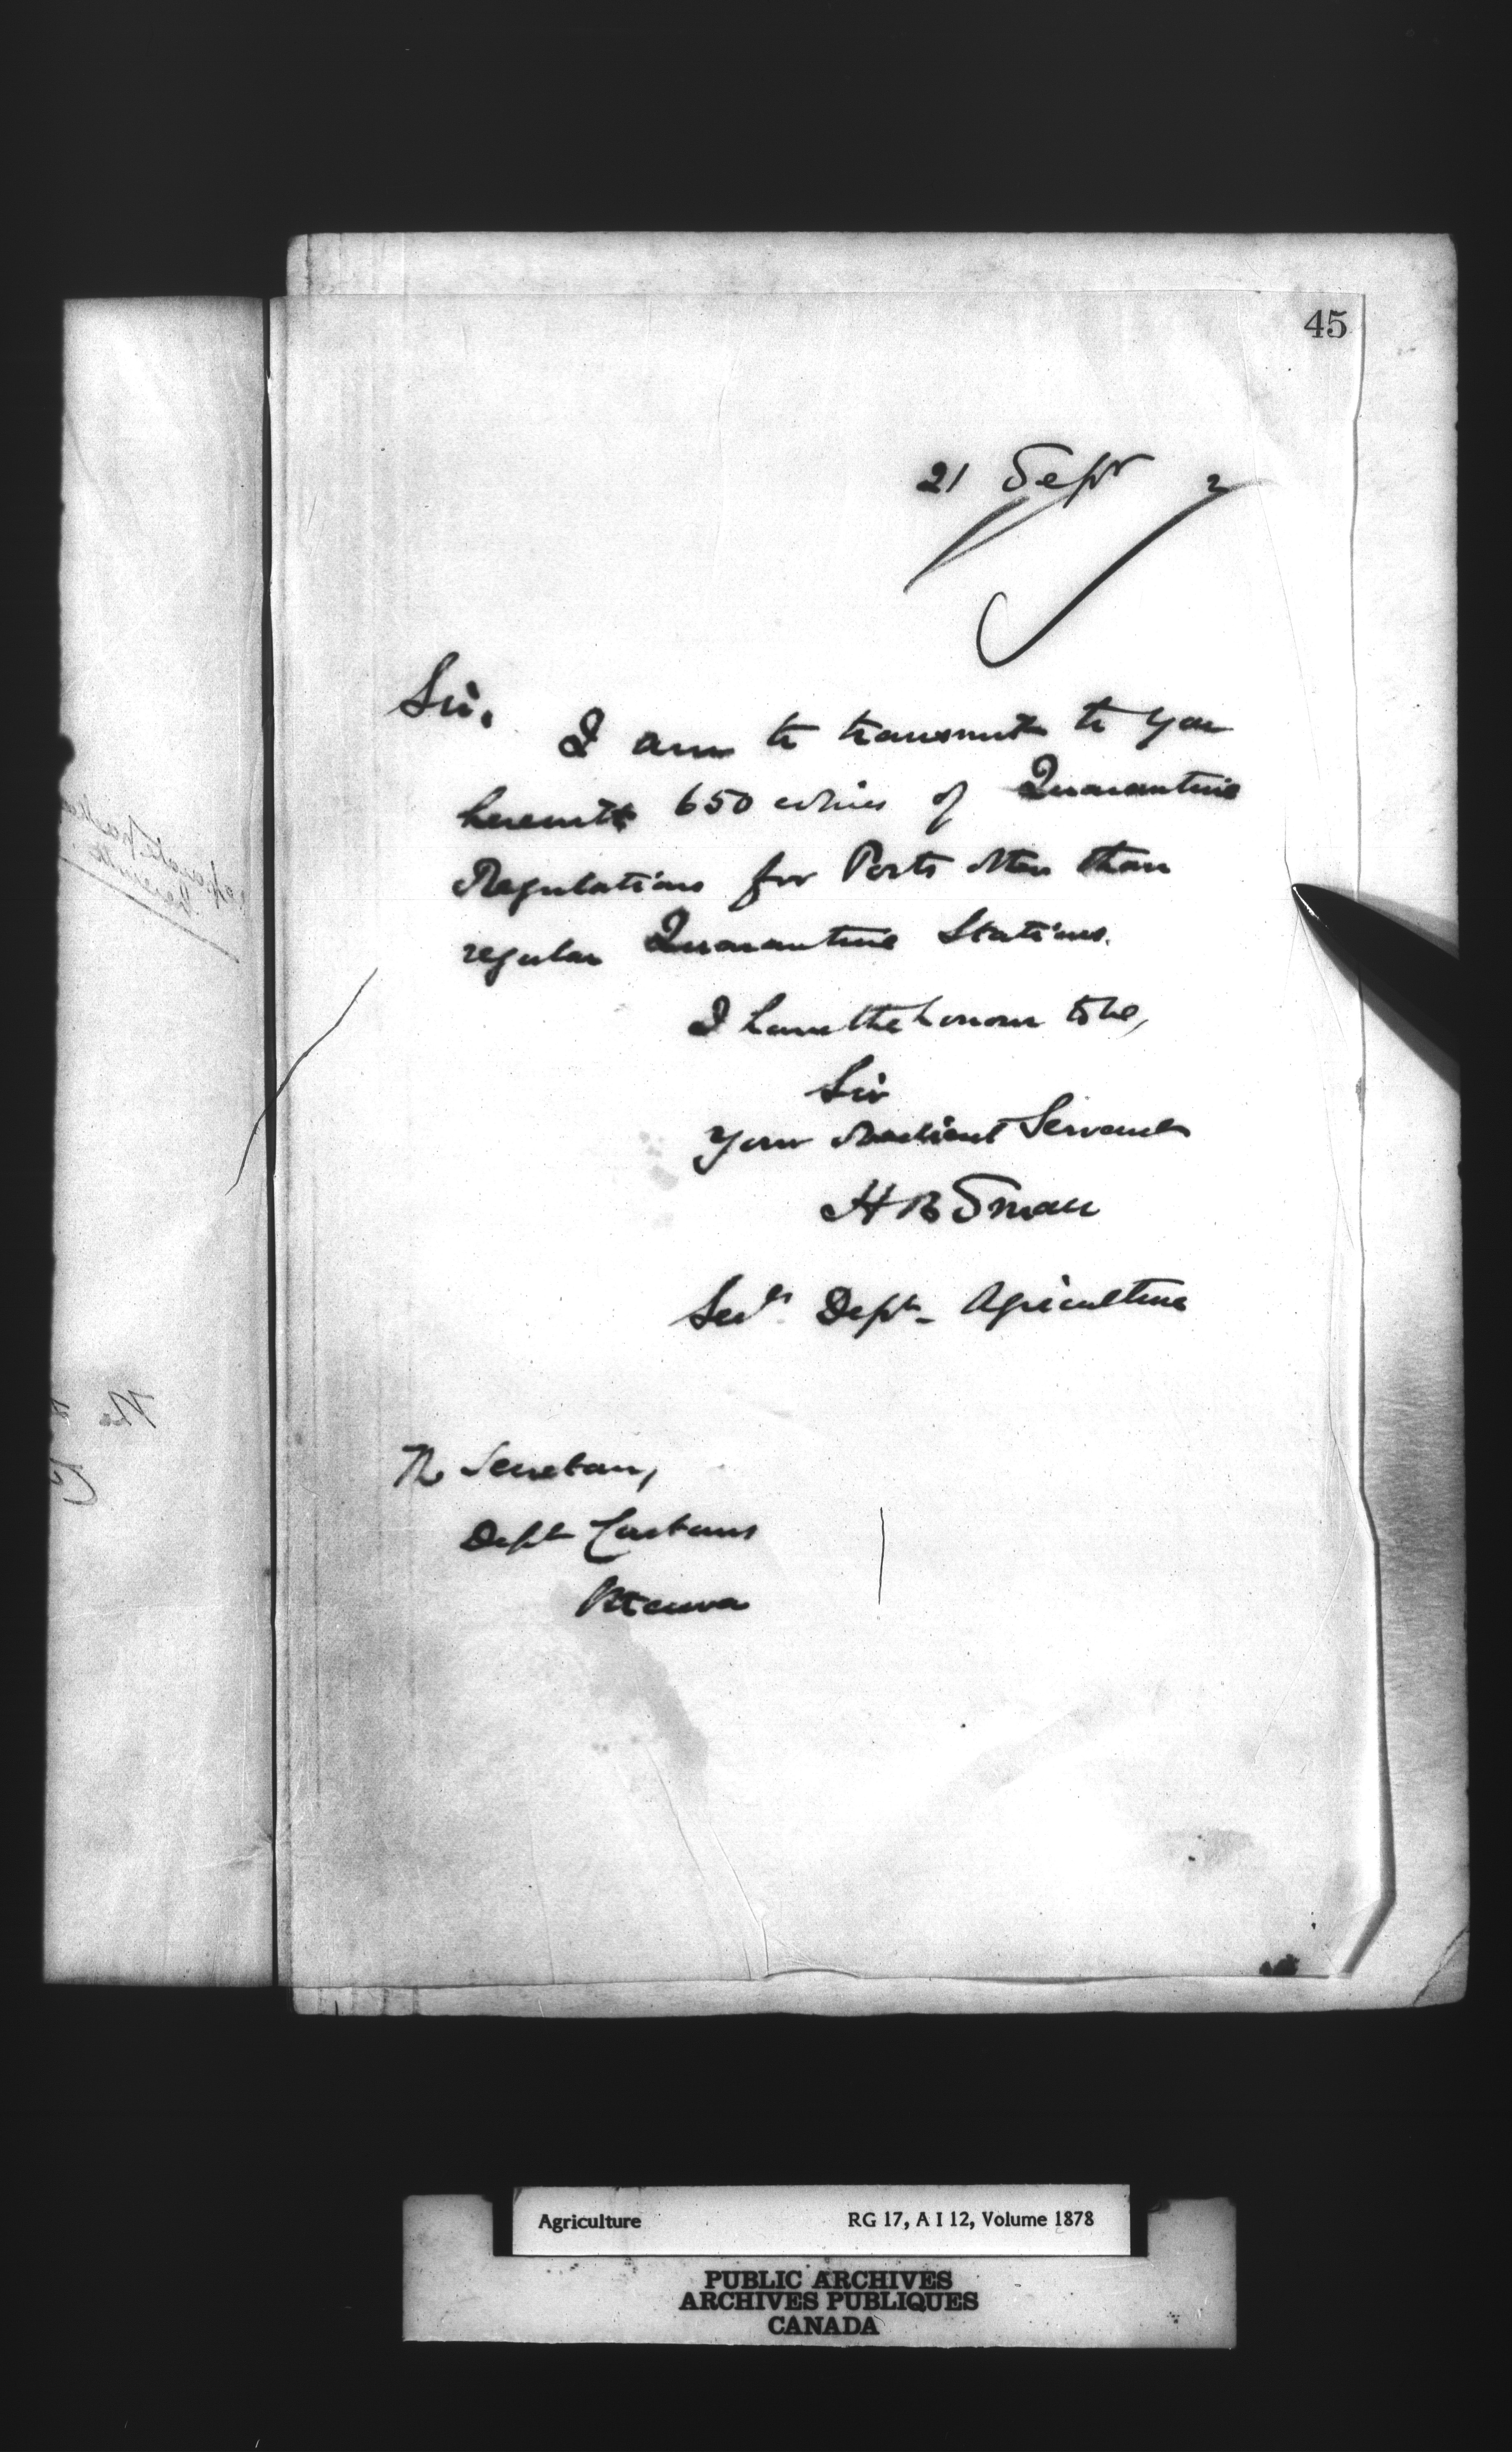 45
21 Sepr 2
Sir.
I am to transmit to you
herewith 650 copies of Quarantine
Regulations for Ports other than
regular Quarantine Stations.
I have the honour to be,
Sir
Your obedient Servant
H B Small
Secy Dept. Agriculture
The Secretary,
Dept Customs
Ottawa
Agriculture RG 17, A I 12, Volume 1878
PUBLIC ARCHIVES
ARCHIVES PUBLIQUES
CANADA